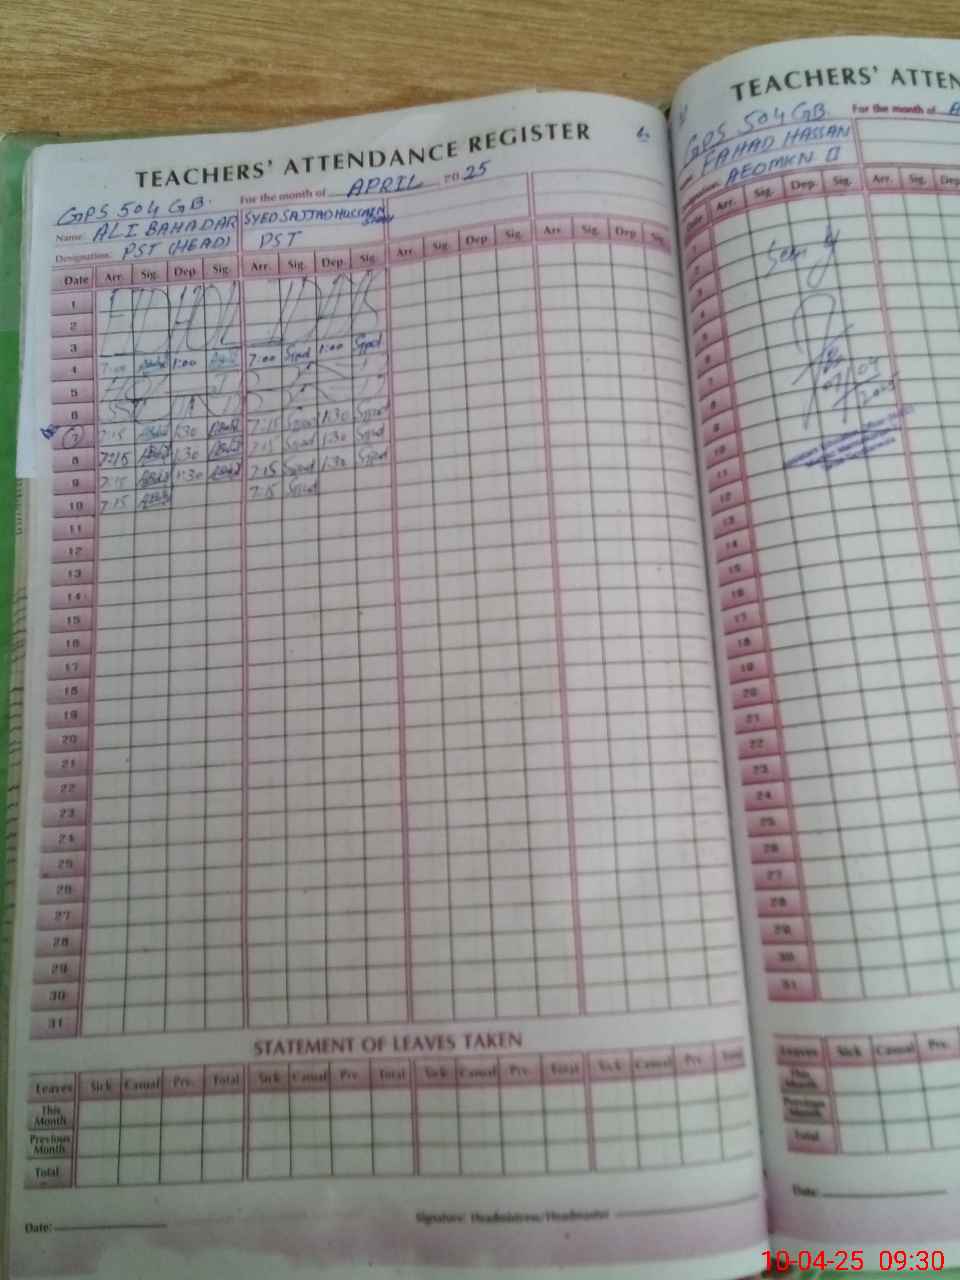 TEACHERS' ATTENDANCE REGISTER
For the month of APRIL 2025
GPS 504 GB.
Name: ALI BAHADAR SYED SAJJAD HUSSAIN
Designation: PST (HEAD) PST
Date Arr. Sig. Dep. Sig. Arr. Sig. Dep. Sig. Arr. Sig. Dep Sig. Arr. Sig. Dep Sig.
1 HOLIDAYS
2
3
4 7:00 1:00 7:00 Sjjad 1:00 Sjjad
5
6
7 7:15 1:30 7:15 Sjjad 1:30 Sjjad
8 7:15 1:30 7:15 Sjjad 1:30 Sjjad
9 7:15 1:30 7:15 Sjjad 1:30 Sjjad
10 7:15 7:15 Sjjad
11
12
13
14
15
16
17
18
19
20
21
22
23
24
25
26
27
28
29
30
31
STATEMENT OF LEAVES TAKEN
Leaves Sick Casual Pre. Total Sick Casual Pre. Total Sick Casual Pre. Total Sick Casual Pre. Total
This Month
Previous Month
Total
Date: Signature: Headmistress/Headmaster
TEACHERS' ATTEN
For the month of
GPS 504 GB.
FAHAD HASSAN
AEOMKN II
Date Arr. Sig. Dep. Sig. Arr. Sig. Dep
1
2
3
4
5
6
7
8
9
10
11
12
13
14
15
16
17
18
19
20
21
22
23
24
25
26
27
28
29
30
31
Leaves Sick Casual Pre.
This Month
Previous Month
Total
Date:
10-04-25 09:30